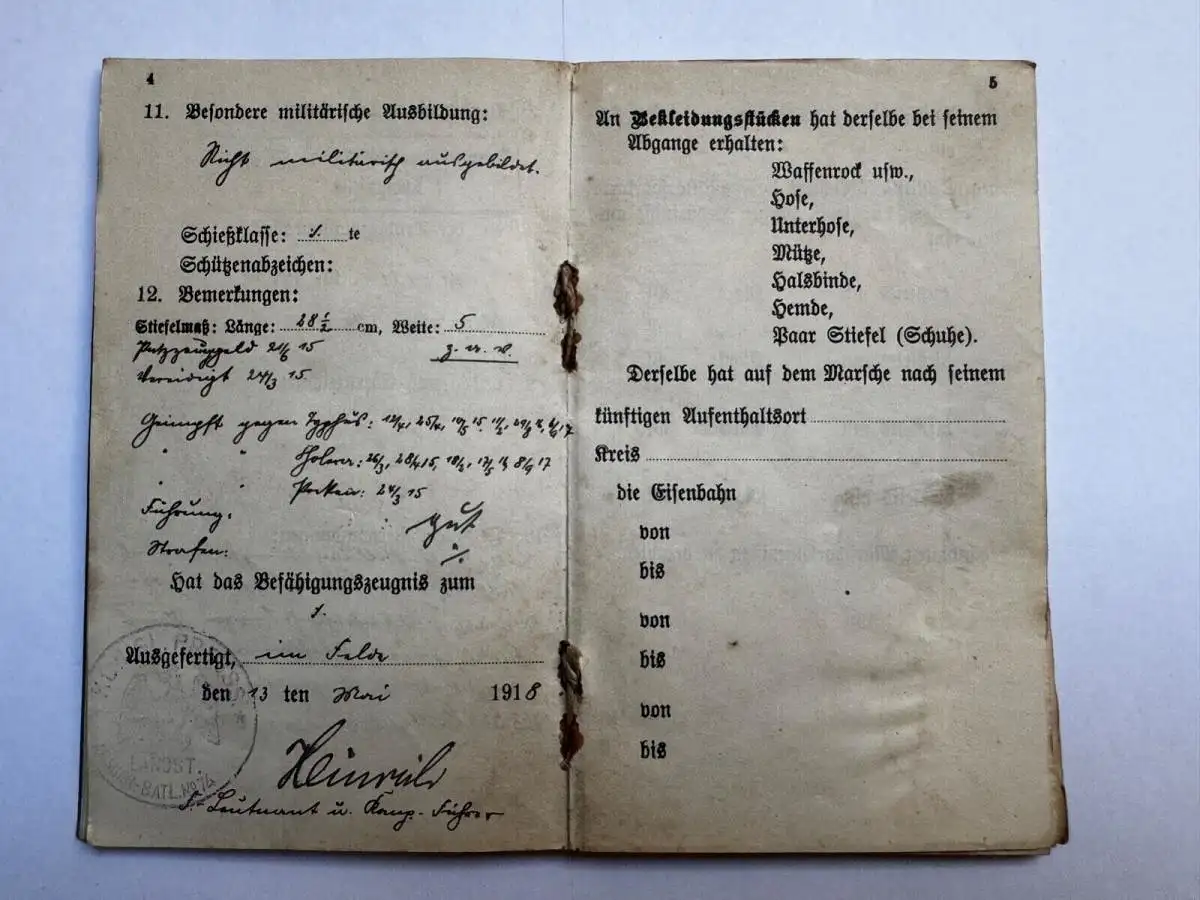 4
11. Besondere militärische Ausbildung:
Nicht militärisch ausgebildet.
Schießklasse: ./. te
Schützenabzeichen:
12. Bemerkungen:
Stiefelmaß: Länge: 28 1/2 cm, Weite: 5
Putzzeuggeld 21/6 15 z. u. v.
Vereidigt 24/3 15.
Geimpft gegen Typhus: 12/4, 25/4,
" " Cholera: 26/3, 28/4 15, 8/9 17
" " Pocken: 24/3 15
Führung: gut
Strafen: ./.
Hat das Befähigungszeugnis zum
./.
Ausgefertigt, im Felde
den 13 ten Mai 1918
Heinrich
Leutnant u. Komp.-Führer
LANDST.
BATL. No
5
An Bekleidungsstücken hat derselbe bei seinem
Abgange erhalten:
Waffenrock usw.,
Hose,
Unterhose,
Mütze,
Halsbinde,
Hemde,
Paar Stiefel (Schuhe).
Derselbe hat auf dem Marsche nach seinem
künftigen Aufenthaltsort
Kreis
die Eisenbahn
von
bis
von
bis
von
bis